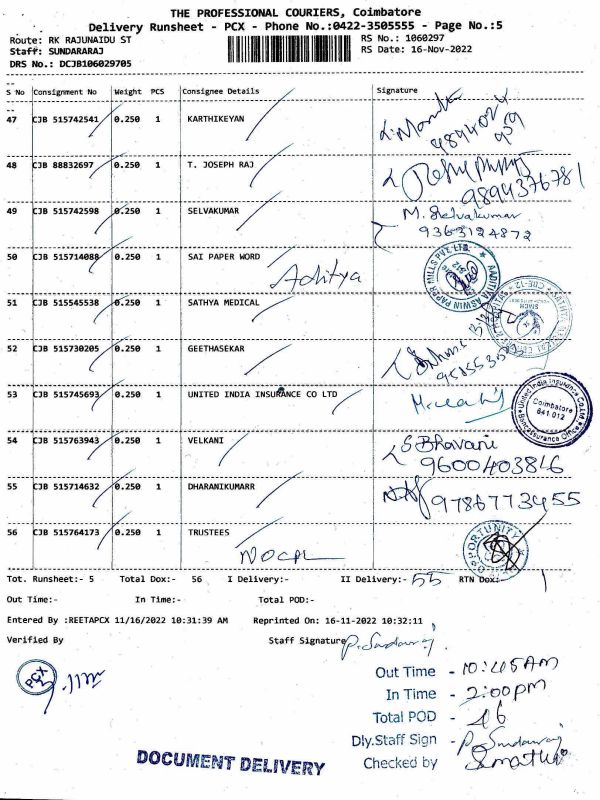 THE PROFESSIONAL COURIERS, Coimbatore
Delivery Runsheet - PCX - Phone No.:0422-3505555 - Page No.:5
Route: RK RAJUNAIDU ST RS No.: 1060297
Staff: SUNDARARAJ RS Date: 16-Nov-2022
DRS No.: DCJB106029705
S No Consignment No Weight PCS Consignee Details Signature
47 CJB 515742541 0.250 1 KARTHIKEYAN
48 CJB 88832697 0.250 1 T. JOSEPH RAJ
9894376781
49 CJB 515742598 0.250 1 SELVAKUMAR M. Selvakumar
9363124872
50 CJB 515714088 0.250 1 SAI PAPER WORD
Aditya
AADITYA ASWIN PAPER MILLS PVT. LTD.
51 CJB 515545538 0.250 1 SATHYA MEDICAL
52 CJB 515730205 0.250 1 GEETHASEKAR
53 CJB 515745693 0.250 1 UNITED INDIA INSURANCE CO LTD
United India Insurance Co. Ltd
Coimbatore
641 012
Bancassurance Office
54 CJB 515763943 0.250 1 VELKANI S Bhavani
9600403816
55 CJB 515714632 0.250 1 DHARANIKUMARR 9786773455
56 CJB 515764173 0.250 1 TRUSTEES
OPPORTUNITY
Tot. Runsheet:- 5 Total Dox:- 56 I Delivery:- II Delivery:- 55 RTN Dox:- 1
Out Time:- In Time:- Total POD:-
Entered By :REETAPCX 11/16/2022 10:31:39 AM Reprinted On: 16-11-2022 10:32:11
Verified By Staff Signature P. Sundararaj
PCX
Out Time - 10:45AM
In Time - 2:00pm
Total POD - 46
Dly.Staff Sign - P. Sundararaj
Checked by
DOCUMENT DELIVERY